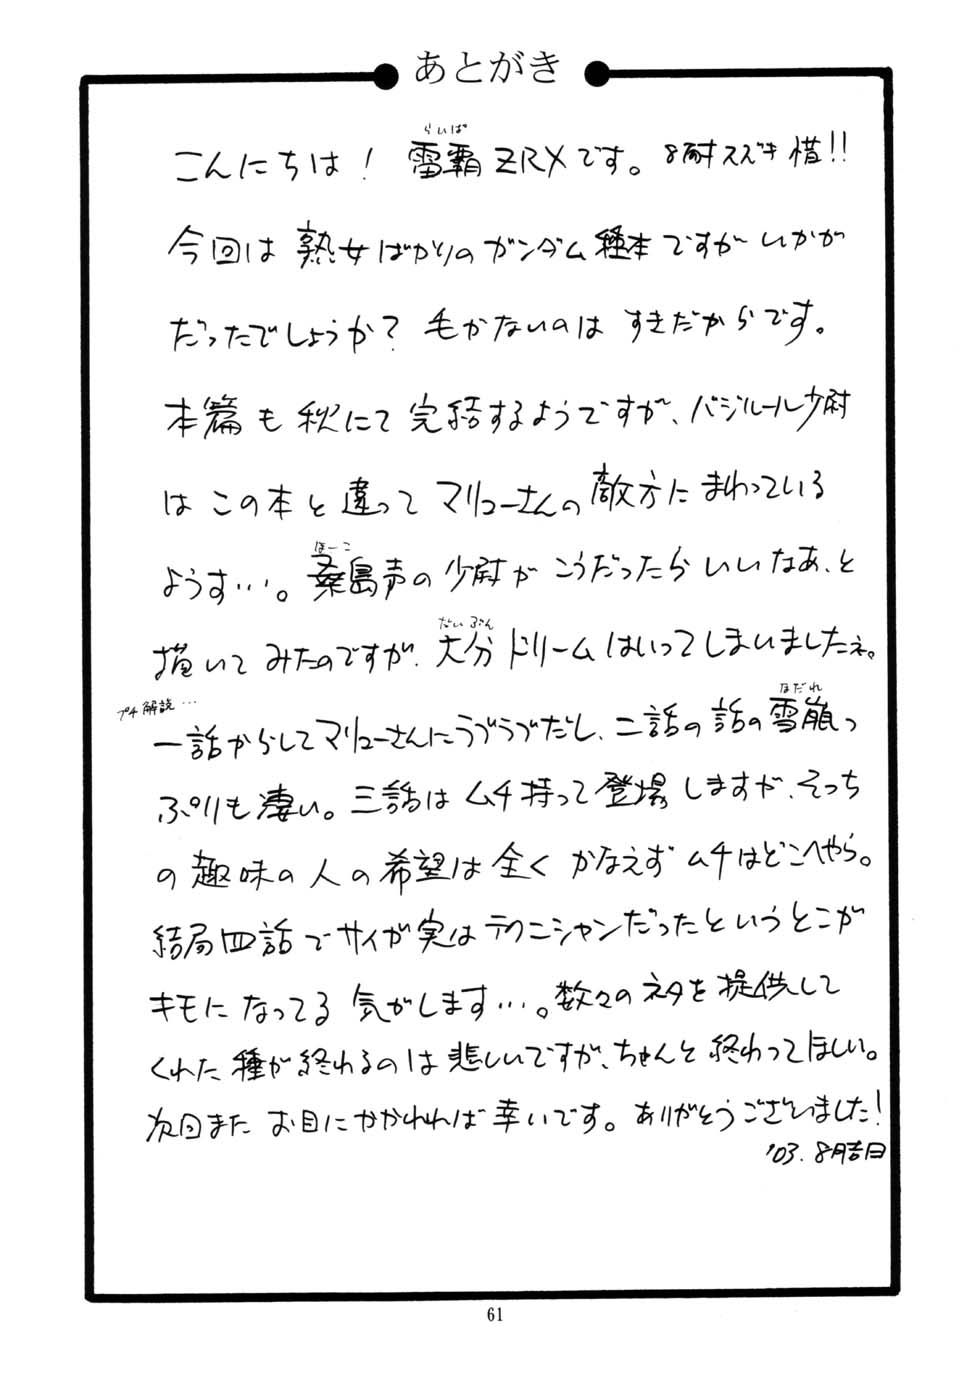 あとがき
らいぱ
こんにちは! 雷覇ZRXです。8耐スズキ惜!!
今回は熟女ばかりのガンダム種本ですがいかが
だったでしょうか? 毛がないのはすきだからです。
本篇も秋にて完結するようですが、バジルール少尉
はこの本と違ってマリューさんの敵方にまわっている
ほーこ
ようす…。桑島声の少尉がこうだったらいいなあ、と
だいぶん
描いてみたのですが、大分ドリームはいってしまいましたネ。
プチ解説…
なだれ
一話からしてマリューさんにラブラブだし、二話の話の雪崩っ
ぷりも凄い。三話はムチ持って登場しますが、そっち
の趣味の人の希望は全くかなえずムチはどこへやら。
結局四話でサイが実はテクニシャンだったというとこが
キモになってる気がします…。数々のネタを提供して
くれた種が終わるのは悲しいですが、ちゃんと終わってほしい。
次回またお目にかかれれば幸いです。ありがとうございました!
'03. 8月吉日
61